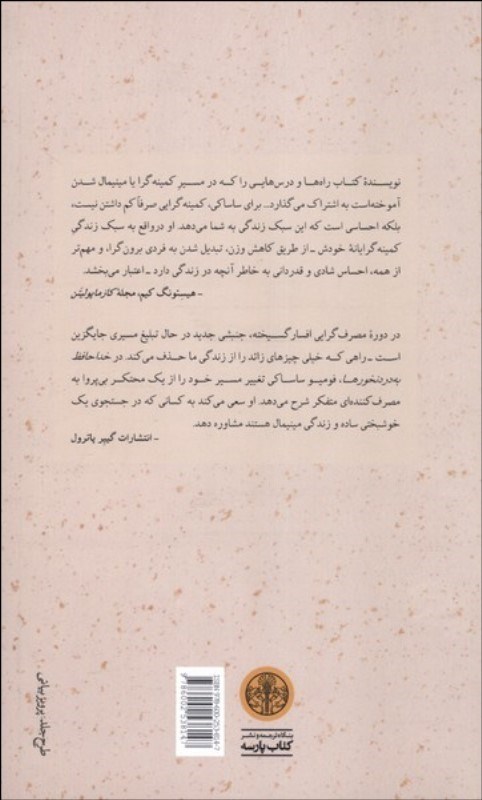 نویسندهٔ کتاب راه‌ها و درس‌هایی را که در مسیر کمینه‌گرا یا مینیمال شدن
آموخته‌است به اشتراک می‌گذارد... برای ساساکی، کمینه‌گرایی صرفاً کم داشتن نیست،
بلکه احساسی است که این سبک زندگی به شما می‌دهد. او درواقع به سبک زندگیِ
کمینه‌گرایانهٔ خودش ـ از طریق کاهش وزن، تبدیل شدن به فردی برون‌گرا، و مهم‌تر
از همه، احساس شادی و قدردانی به خاطر آنچه در زندگی دارد ـ اعتبار می‌بخشد.
- هیسونگ کیم، مجلهٔ کازماپولیتن
در دورهٔ مصرف‌گرایی افسارگسیخته، جنبشی جدید در حال تبلیغ مسیری جایگزین
است ـ راهی که خیلی چیزهای زائد را از زندگی ما حذف می‌کند. در خداحافظ
به‌دردنخورها، فومیو ساساکی تغییر مسیر خود را از یک محتکر بی‌پروا به
مصرف‌کننده‌ای متفکر شرح می‌دهد. او سعی می‌کند به کسانی که در جستجوی یک
خوشبختی ساده و زندگی مینیمال هستند مشاوره دهد.
- انتشارات گیپر پاترول
طرح جلد: پرویز بیانی
ISBN 978-600-253-814-7
9786002538147
بنگاه ترجمه و نشر
کتاب پارسه